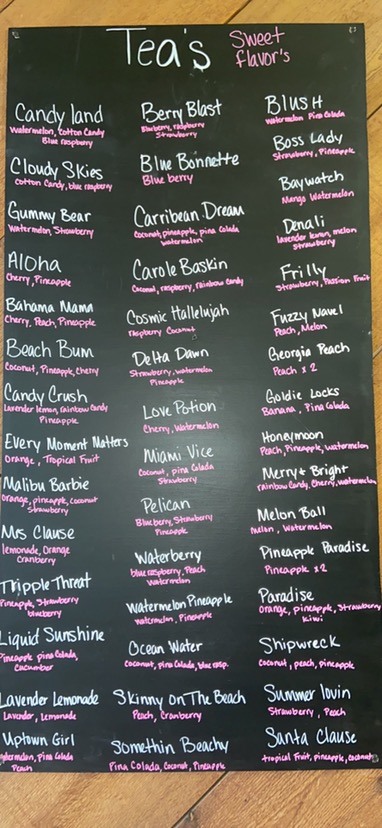 Tea's
Sweet
flavor's
Candy land
Watermelon, Cotton Candy
Blue raspberry
Cloudy Skies
Cotton Candy, blue raspberry
Gummy Bear
Watermelon, Strawberry
Aloha
Cherry, Pineapple
Bahama Mama
Cherry, Peach, Pineapple
Beach Bum
Coconut, Pineapple, Cherry
Candy Crush
Lavender lemon, rainbow candy
Pineapple
Every Moment Matters
Orange, Tropical Fruit
Malibu Barbie
Orange, pineapple, coconut
Strawberry
Mrs Clause
lemonade, Orange
Cranberry
Tripple Threat
Pineapple, Strawberry
blueberry
Liquid Sunshine
Pineapple pina Colada,
Cucumber
Lavender Lemonade
Lavender, Lemonade
Uptown Girl
Watermelon, Pina Colada
Peach
Berry Blast
Blueberry, raspberry
Strawberry
Blue Bonnette
Blue berry
Carribean Dream
Coconut, pineapple, pina Colada
watermelon
Carole Baskin
Coconut, raspberry, rainbow Candy
Cosmic Hallelujah
raspberry Coconut
Delta Dawn
Strawberry, watermelon
Pineapple
Love Potion
Cherry, Watermelon
Miami Vice
Coconut, pina Colada
Strawberry
Pelican
Blueberry, Strawberry
Pineapple
Waterberry
blue raspberry, Peach
Watermelon
Watermelon Pineapple
watermelon, Pineapple
Ocean Water
Coconut, Pina Colada, blue rasp.
Skinny On The Beach
Peach, Cranberry
Somethin Beachy
Pina Colada, Coconut, Pineapple
Blush
Watermelon Pina Colada
Boss Lady
Strawberry, Pineapple
Baywatch
Mango Watermelon
Denali
lavender lemon, melon
Strawberry
Frilly
Strawberry, Passion Fruit
Fuzzy Navel
Peach, Melon
Georgia Peach
Peach x 2
Goldie Locks
Banana, Pina Colada
Honeymoon
Peach, Pineapple, watermelon
Merry + Bright
rainbow Candy, Cherry, watermelon
Melon Ball
Melon, Watermelon
Pineapple Paradise
Pineapple x2
Paradise
Orange, pineapple, Strawberry
Kiwi
Shipwreck
Coconut, peach, pineapple
Summer lovin
Strawberry, Peach
Santa Clause
tropical Fruit, pineapple, coconut